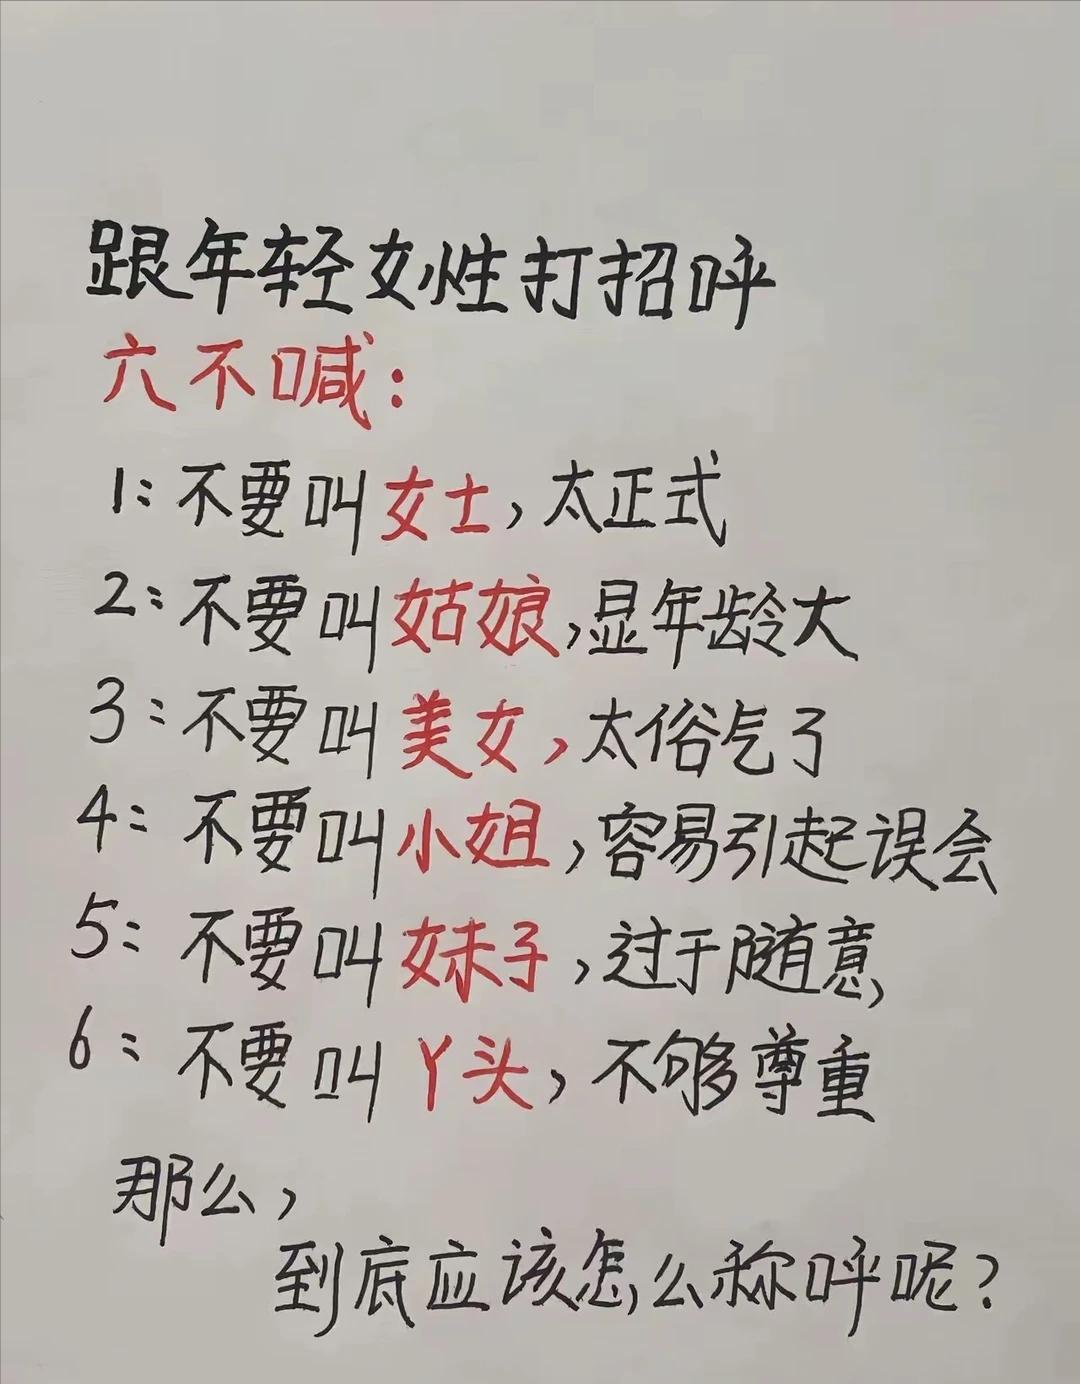 跟年轻女性打招呼
六不喊:
1:不要叫女士,太正式
2:不要叫姑娘,显年龄大
3:不要叫美女,太俗气了
4:不要叫小姐,容易引起误会
5:不要叫妹子,过于随意,
6:不要叫丫头,不够尊重
那么,
到底应该怎么称呼呢?